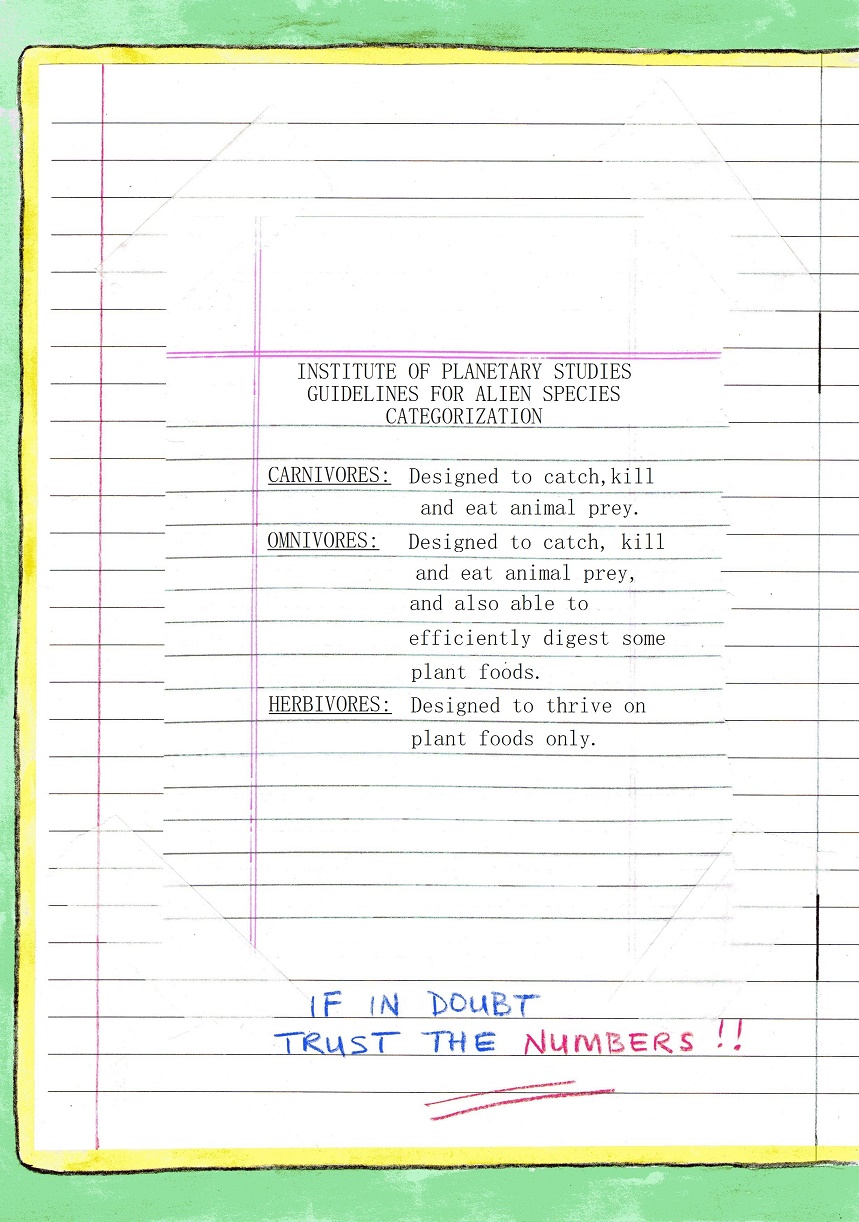 INSTITUTE OF PLANETARY STUDIES
GUIDELINES FOR ALIEN SPECIES
CATEGORIZATION
CARNIVORES: Designed to catch,kill
and eat animal prey.
OMNIVORES: Designed to catch, kill
and eat animal prey,
and also able to
efficiently digest some
plant foods.
HERBIVORES: Designed to thrive on
plant foods only.
IF IN DOUBT
TRUST THE NUMBERS!!